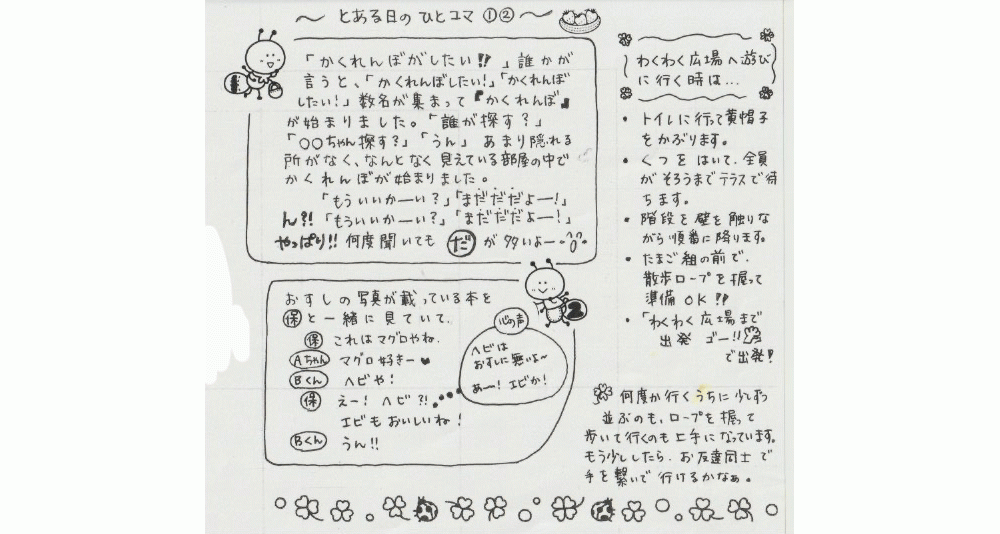 〜とある日のひとコマ①②〜
「かくれんぼがしたい!!」誰かが
言うと、「かくれんぼしたい!」「かくれんぼ
したい!」数名が集まって『かくれんぼ』
が始まりました。「誰が探す?」
「○○ちゃん探す?」「うん」あまり隠れる
所がなく、なんとなく見えている部屋の中で
かくれんぼが始まりました。
「もういいかーい?」「まだだだよー!」
ん?!「もういいかーい?」「まだだだよー!」
やっぱり!!何度聞いても だ が多いよー
2
おすしの写真が載っている本を
保と一緒に見ていて、
保 これはマグロやね。
Aちゃん マグロ好きー
Bくん ヘビや!
保 えー!ヘビ?!
エビもおいしいね!
Bくん うん!!
心の声
ヘビは
おすしに無いよ〜
あー!エビか!
わくわく広場へ遊び
に行く時は…
・トイレに行って黄帽子
をかぶります。
・くつをはいて、全員
がそろうまでテラスで待
ちます。
・階段を壁を触りな
がら順番に降ります。
・たまご組の前で、
散歩ロープを握って
準備OK!!
・「わくわく広場まで
出発 ゴー!!」
で出発!
何度か行くうちに少しずつ
並ぶのも、ロープを握って
歩いて行くのも上手になっています。
もう少ししたら、お友達同士で
手を繋いで行けるかなぁ。